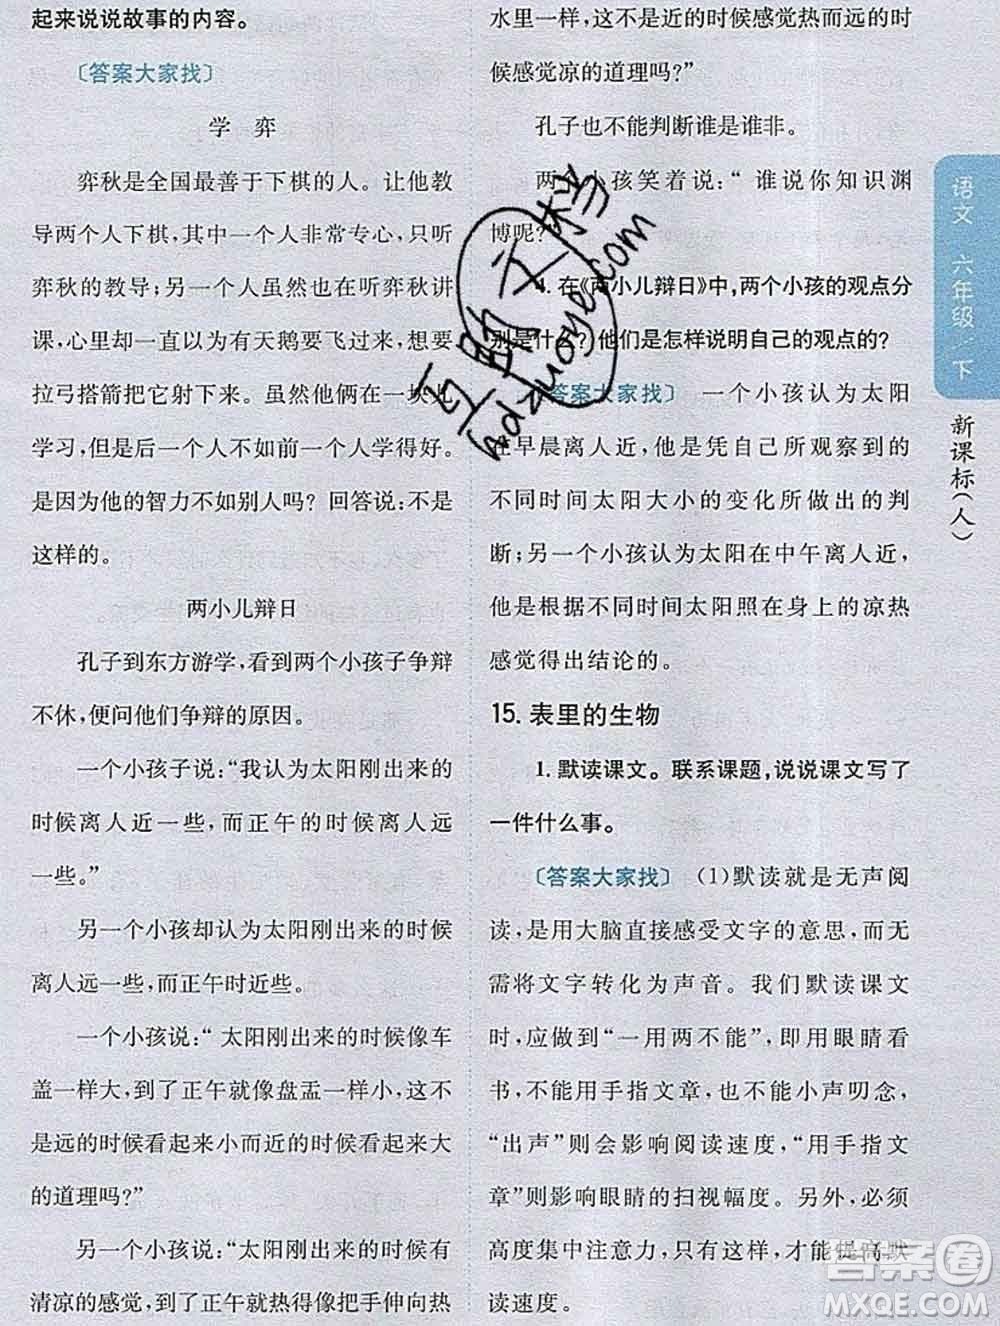 起来说说故事的内容。
〔答案大家找〕
学 弈
弈秋是全国最善于下棋的人。让他教
导两个人下棋,其中一个人非常专心,只听
弈秋的教导;另一个人虽然也在听弈秋讲
课,心里却以为有天鹅要飞过来,想要
拉弓搭箭把它射下来。虽然他俩在一块儿
学习,但是后一个人不如前一个人学得好。
是因为他的智力不如别人吗? 回答说:不是
这样的。
两小儿辩日
孔子到东方游学,看到两个小孩子争辩
不休,便问他们争辩的原因。
一个小孩子说:“我认为太阳刚出来的
时候离人近一些,而正午的时候离人远
一些。”
另一个小孩却认为太阳刚出来的时候
离人远一些,而正午时近些。
一个小孩说:“ 太阳刚出来的时候像车
盖一样大,到了正午就像盘盂一样小,这不
是远的时候看起来小而近的时候看起来大
的道理吗?”
另一个小孩说:“太阳刚出来的时候有
清凉的感觉,到了正午就热得像把手伸向热
水里一样,这不是近的时候感觉热而远的时
候感觉凉的道理吗?”
孔子也不能判断谁是谁非。
两 小孩笑着说:“ 谁说你知识渊
博呢?”
4. 在《两小儿辩日》中,两个小孩的观点分
别是什么?他们是怎样说明自己的观点的?
〔答案大家找〕 一个小孩认为太阳
在早晨离人近,他是凭自己所观察到的
不同时间太阳大小的变化所做出的判
断;另一个小孩认为太阳在中午离人近,
他是根据不同时间太阳照在身上的凉热
感觉得出结论的。
15. 表里的生物
1. 默读课文。联系课题,说说课文写了
一件什么事。
〔答案大家找〕 (1)默读就是无声阅
读,是用大脑直接感受文字的意思,而无
需将文字转化为声音。我们默读课文
时,应做到“一用两不能”,即用眼睛看
书,不能用手指文章,也不能小声叨念,
“出声”则会影响阅读速度,“用手指文
章”则影响眼睛的扫视幅度。另外,必须
高度集中注意力,只有这样,才能提高默
读速度。
语文 六年级/下
新课标(人)
答案圈
MXQE.COM